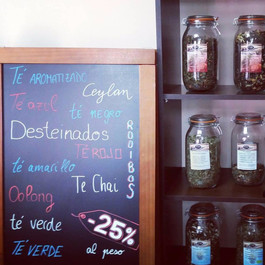 Té AROMATIZADO
Ceylan
Te azul
té negro
Desteinados
TÉ ROJO
ROIBOS
té amarillo
Te Chai
Oolong
té verde
-25%
TÉ VERDE
al peso